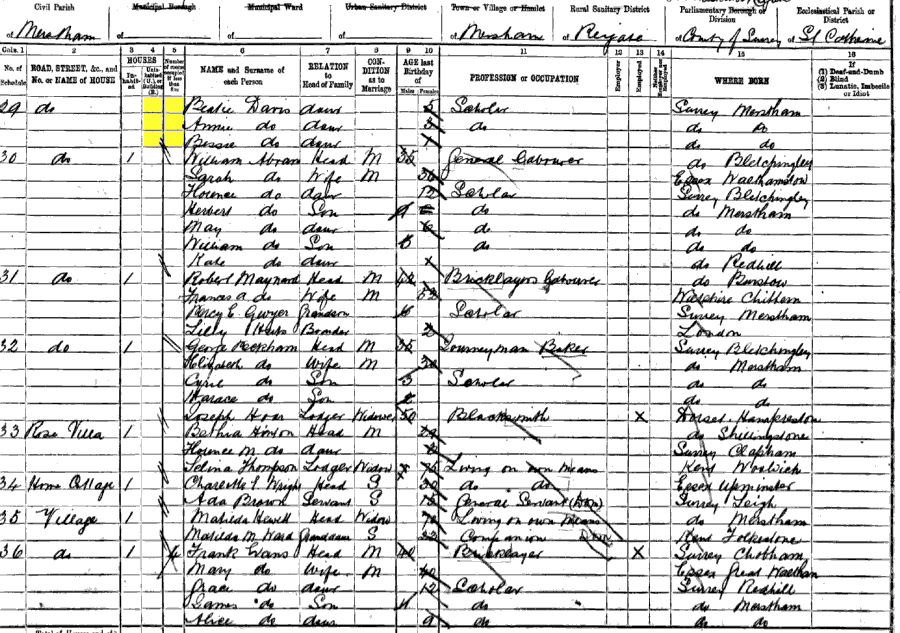 Civil Parish Municipal Borough Municipal Ward Urban Sanitary District Town or Village or Hamlet Rural Sanitary District Parliamentary Borough or Division Ecclesiastical Parish or District
of Merstham of of of of Mersham of Reigate of County of Surrey of St Catherine
Cols. 1 2 3 4 5 6 7 8 9 10 11 12 13 14 15 16
No. of Schedule ROAD, STREET, &c., and No. or NAME of HOUSE HOUSES Inhabited Number of rooms occupied if less than five NAME and Surname of each Person RELATION to Head of Family CONDITION as to Marriage AGE last Birthday of Males Females PROFESSION or OCCUPATION Employer Employed WHERE BORN If (1) Deaf-and-Dumb (2) Blind (3) Lunatic, Imbecile or Idiot
29 do Davis daur 5 Scholar Surrey Merstham
Annie do daur 3 do do do
Bessie do daur 1 do do
30 do 1 William Abram Head M 35 General Labourer do Bletchingley
Sarah do Wife M 36 Essex Walthamstow
Florence do daur 12 Scholar Surrey Bletchingley
Herbert do Son 9 do do Merstham
May do daur 6 do do do
William do Son do do do
Kate do daur do Redhill
31 do 1 Robert Maynard Head M 42 Bricklayers Labourer do Burstow
Frances A do Wife M 52 Wiltshire Chittern
Percy E. Gwyer Grandson Scholar Surrey Merstham
Lilly Boarder 2 London
32 do 1 George Peckham Head M 32 Journeyman Baker Surrey Bletchingley
Elizabeth do Wife M 30 do Merstham
Cyril do Son 3 Scholar do do
Horace do Son 2 do do
Joseph Hoar Lodger Widower 50 Blacksmith X Dorset Hampreston
33 Rose Villa 1 Bethia Hixson Head M 29 do Shillingstone
Florence M. do daur Surrey Clapham
Selina Thompson Lodger Widow x 75 Living on own means Kent Woolwich
34 Home Cottage 1 Charlotte S. Wright Head S 30 do do Essex Upminster
Ada Brown Servant S 15 General Servant (Dom) Surrey Leigh
35 Village 1 Matilda Hewell Head Widow Living on own means do Merstham
Matilda M. Ward Granddaur S 22 Companion Dom Kent Folkestone
36 do 1 4 Frank Evans Head M 40 Bricklayer X Surrey Chobham
Mary do Wife M 40 Essex Great Waltham
Grace do daur 12 Scholar Surrey Redhill
James do Son 11 do do Merstham
Alice do daur 9 do do do